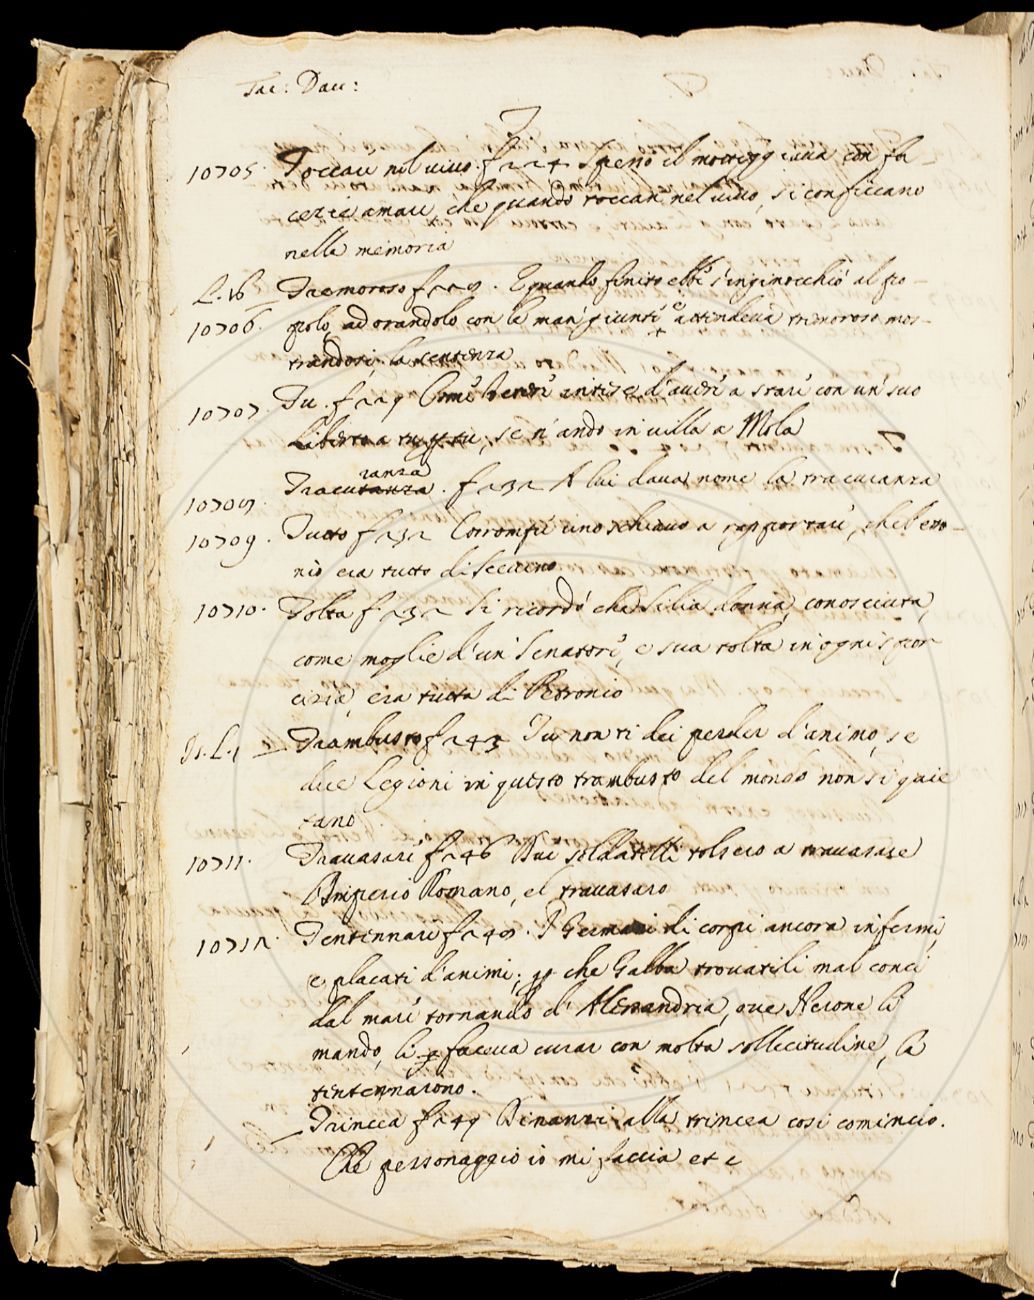 Tac: Dav:
T
10705. Toccare nel vivo. f 224 Spesso il motteggiava con fa
cezie amare, che quando toccan nel vivo, si conficcano
nella memoria
L. 16 Tremoroso f 229. E quando finito ebbe s'inginocchiò al po-
10706. polo, adorandolo con le man giunte e attendeva tremoroso mos-
trandosi la sentenza
10707. Tu. f 229 Come Venere intese d'avere a stare con un suo
Liberto a tu per tu, se n'andò in villa a Mola
ranza
Tracutanza. f 232 A lui dava nome la tracuranza
10708.
10709. Tutto f 232 Corrompe uno schiavo a rapportare, che Petro-
nio era tutto di Scevino
10710. Tolta f 232 Si ricordò che Silia donna, conosciuta,
come moglie d'un Senatore, e sua tolta in ogni spor
cizia, era tutta di Petronio
Trambusto f 243 Tu non ti dei perder d'animo, se
due Legioni in questo trambusto del mondo non si quie
tano
10711. Travasare f 246 Due soldatelli tolsero a travasare
l'Imperio Romano, e'l travasaro
10712. Tentennare f 248. I Germani di corpi ancora infermi,
e placati d'animi; per che Galba trovatili mal conci
dal mare tornando d'Alessandria, ove Nerone li
mandò, li faceva curar con molta sollecitudine, la
tentennarono.
Trincea f 249 Dinanzi alla trincea così cominciò.
Che personaggio io mi faccia et c